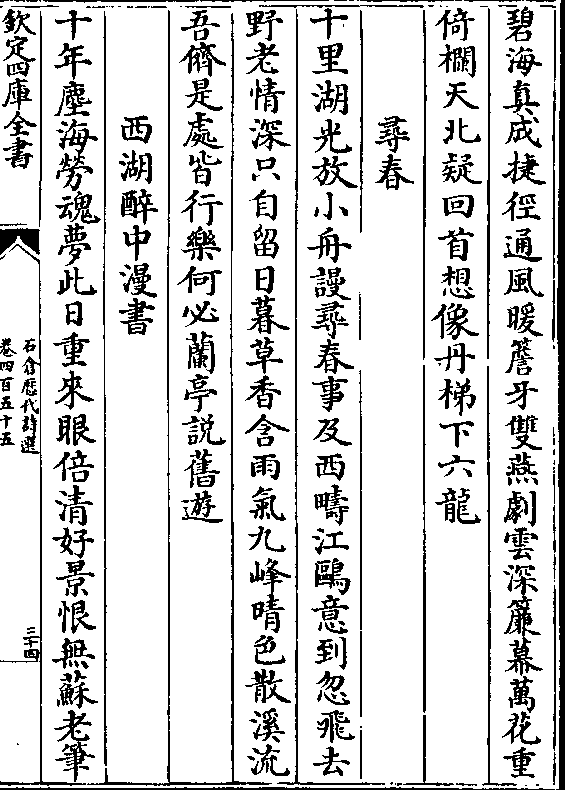 碧海真成捷徑通風暖簷牙雙燕劇雲深簾幕萬花重
倚欄天北疑回首想像丹梯下六龍
尋春
十里湖光放小舟謾尋春事及西疇江鷗意到忽飛去
野老情深只自留日暮草香含雨氣九峰晴色散溪流
吾儕是處皆行樂何必蘭亭説舊遊
西湖醉中漫書
十年塵海勞魂夢此日重來眼倍清好景恨無蘇老筆
欽定四庫全書
石倉歷代詩選
卷四百五十五
三十四